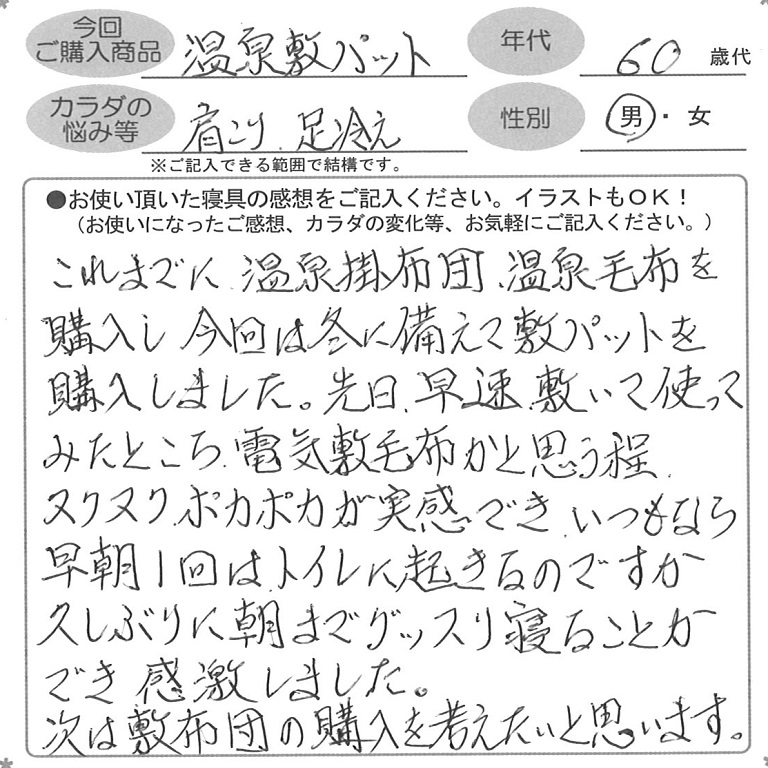 今回
ご購入商品
温泉敷パット
年代
60 歳代
カラダの
悩み等
肩こり、足冷え
性別
男・女
※ご記入できる範囲で結構です。
●お使い頂いた寝具の感想をご記入ください。イラストもOK！
（お使いになったご感想、カラダの変化等、お気軽にご記入ください。）
これまでに、温泉掛布団、温泉毛布を
購入し今回は冬に備えて敷パットを
購入しました。先日、早速、敷いて使って
みたところ、電気敷毛布かと思う程、
ヌクヌク、ポカポカが実感でき、いつもなら
早朝1回はトイレに起きるのですが
久しぶりに朝までグッスリ寝ることが
でき感激しました。
次は敷布団の購入を考えたいと思います。